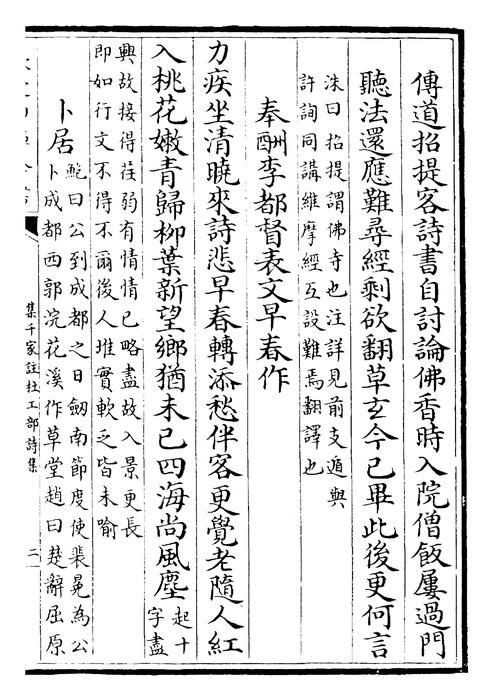 傳道招提客詩書自討論佛香時入院僧飯屢過門
聽法還應難尋經剩欲翻草玄今已畢此後更何言
洙曰招提謂佛寺也注詳見前支遁與
許詢同講維摩經互設難焉翻譯也
奉酬李都督表文早春作
力疾坐清曉來詩悲早春轉添愁伴客更覺老隨人紅
入桃花嫩青歸柳葉新望鄉猶未已四海尚風塵
起十
字盡
興故接得荏弱有情情已略盡故入景更長
即如行文不得不爾後人堆實軟乏皆未喻
卜居
鮑曰公到成都之日劒南節度使裴冕為公
卜成都西郭浣花溪作草堂趙曰楚辭屈原
集千家註杜工部詩集
二